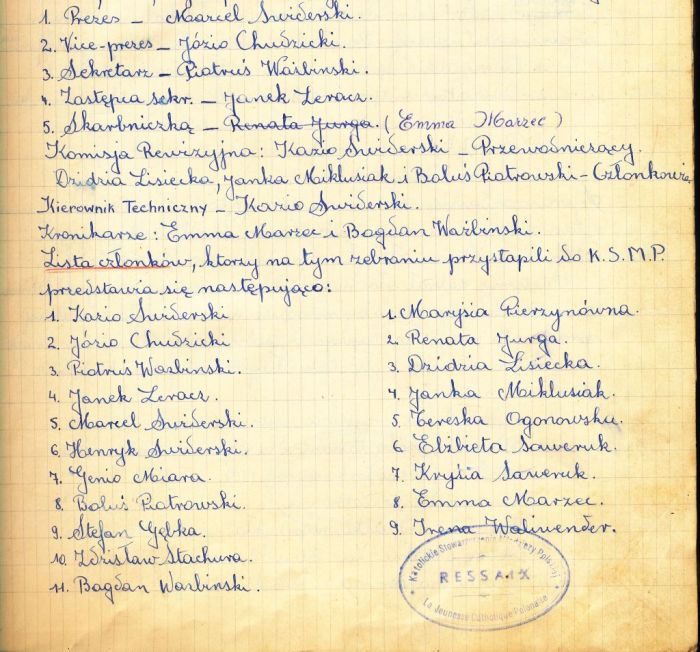 1. Prezes – Marcel Swiderski.
2. Vice-prezes – Józio Chudzicki.
3. Sekretarz – Piotruś Waśbinski.
4. Zastępca sekr. – Janek Leracz.
5. Skarbniczką – Renata Jurga. (Emma Marzec)
Komisja Rewizyjna: Kazio Swiderski – Przewodniczący.
Dzidzia Lisiecka, Janka Miklusiak i Boluś Piotrowski – Członkowie
Kierownik Techniczny – Kazio Swiderski.
Kronikarze: Emma Marzec i Bogdan Waśbinski.
Lista członków, ktorzy na tym zebraniu przystąpili do K.S.M.P.
przedstawia się następująco:
1. Kazio Swiderski
2. Józio Chudzicki
3. Piotruś Waśbinski.
4. Janek Leracz.
5. Marcel Swiderski.
6. Henryk Swiderski.
7. Genio Miara.
8. Boluś Piotrowski.
9. Stefan Gębka.
10. Zdzisław Stachura.
11. Bogdan Waśbinski.
1. Marysia Pierzynówna.
2. Renata Jurga.
3. Dzidzia Lisiecka.
4. Janka Miklusiak.
5. Tereska Ogonowska.
6. Elżbieta Saweruk.
7. Krysia Saweruk.
8. Emma Marzec.
9. Irena Waliwender.
Katolickie Stowarzyszenie Młodzieży Polskiej
RESSAIX
La Jeunesse Catholique Polonaise